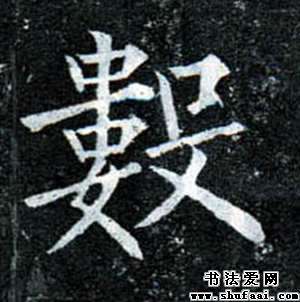 數
书法爱网
www.shufaai.com